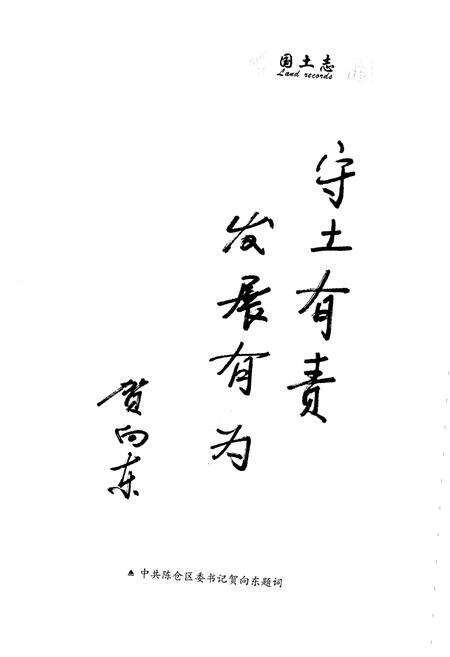 国土志
Land records
守土有责
发展有为
贺向东
▲ 中共陈仓区委书记贺向东题词